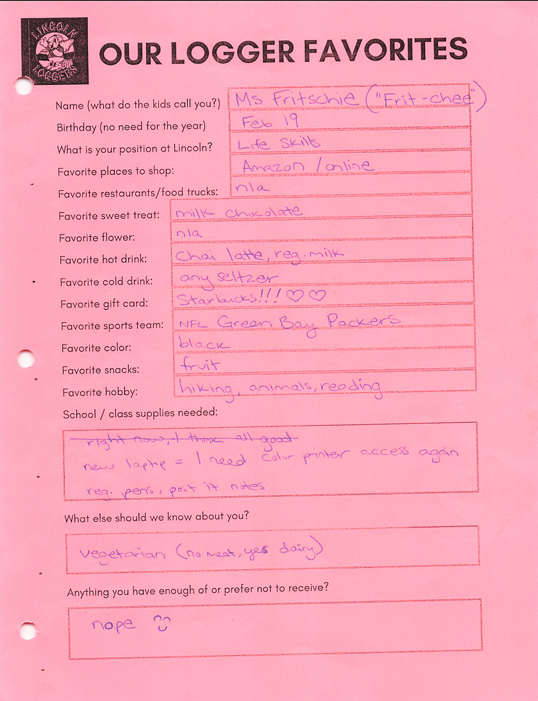 LINCOLN
LOGGERS
OUR LOGGER FAVORITES
Name (what do the kids call you?) Ms Fritschie ("Frit-chee")
Birthday (no need for the year) Feb 19
What is your position at Lincoln? Life Skills
Favorite places to shop: Amazon / online
Favorite restaurants/food trucks: n/a
Favorite sweet treat: milk chocolate
Favorite flower: n/a
Favorite hot drink: Chai latte, reg. milk
Favorite cold drink: any seltzer
Favorite gift card: Starbucks!!! ♡ ♡
Favorite sports team: NFL Green Bay Packers
Favorite color: black
Favorite snacks: fruit
Favorite hobby: hiking, animals, reading
School / class supplies needed:
right now, I think all good
new laptp = I need color printer access again
reg. pens, post it notes
What else should we know about you?
vegetarian (no meat, yes dairy)
Anything you have enough of or prefer not to receive?
nope